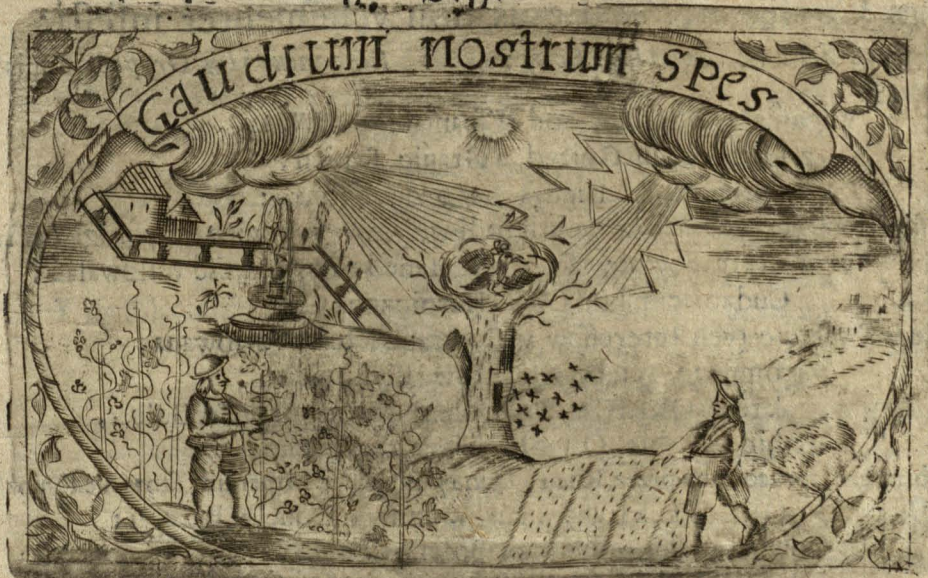 Gaudium nostrum spes